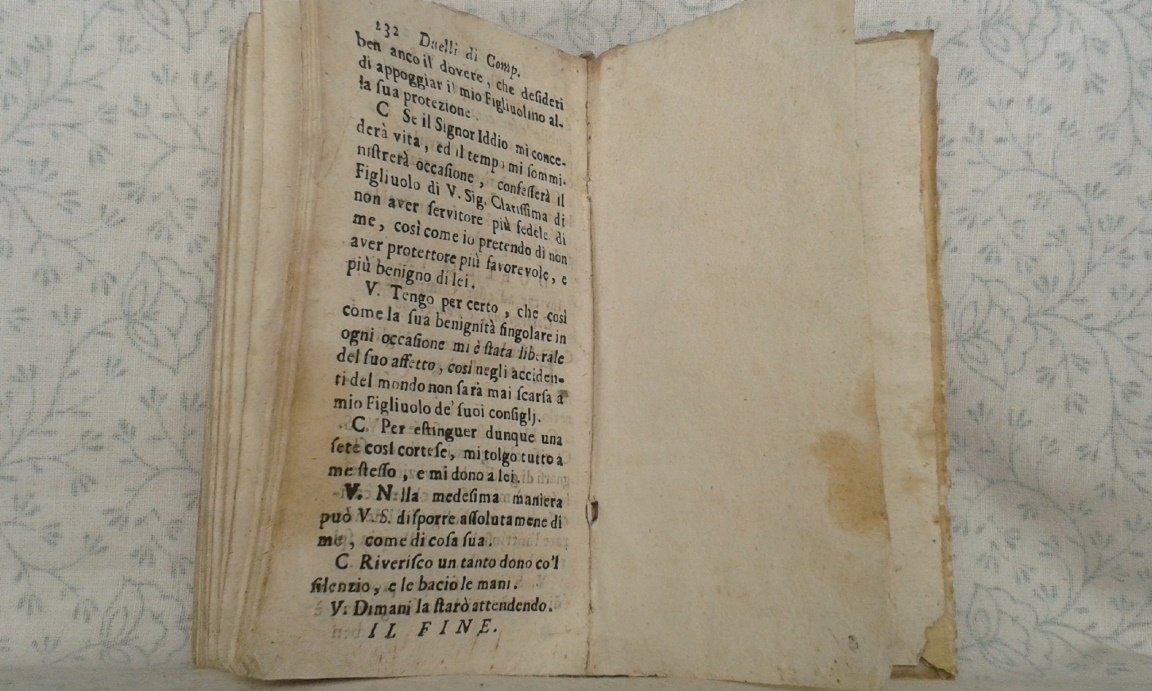 232 Duelli di Comp.
ben anco il dovere, che desideri
di appoggiar il mio Figliuolino al-
la sua protezione.
C Se il Signor Iddio mi conce-
derà vita, ed il tempo mi sommi-
nistrerà occasione, confesserà il
Figliuolo di V. Sig. Clarissima di
non aver servitore più fedele di
me, così come io pretendo di non
aver protettore più favorevole, e
più benigno di lei.
V. Tengo per certo, che così
come la sua benignità singolare in
ogni occasione mi è stata liberale
del suo affetto, così negli acciden-
ti del mondo non sarà mai scarsa a
mio Figliuolo de' suoi consiglj.
C. Per estinguer dunque una
sete così cortese, mi tolgo tutto a
me stesso, e mi dono a lei.
V. Nella medesima maniera
può V. S. disporre assolutamene di
me, come di cosa sua.
C. Riverisco un tanto dono co'l
silenzio, e le bacio le mani.
V. Dimani la starò attendendo.
IL FINE.